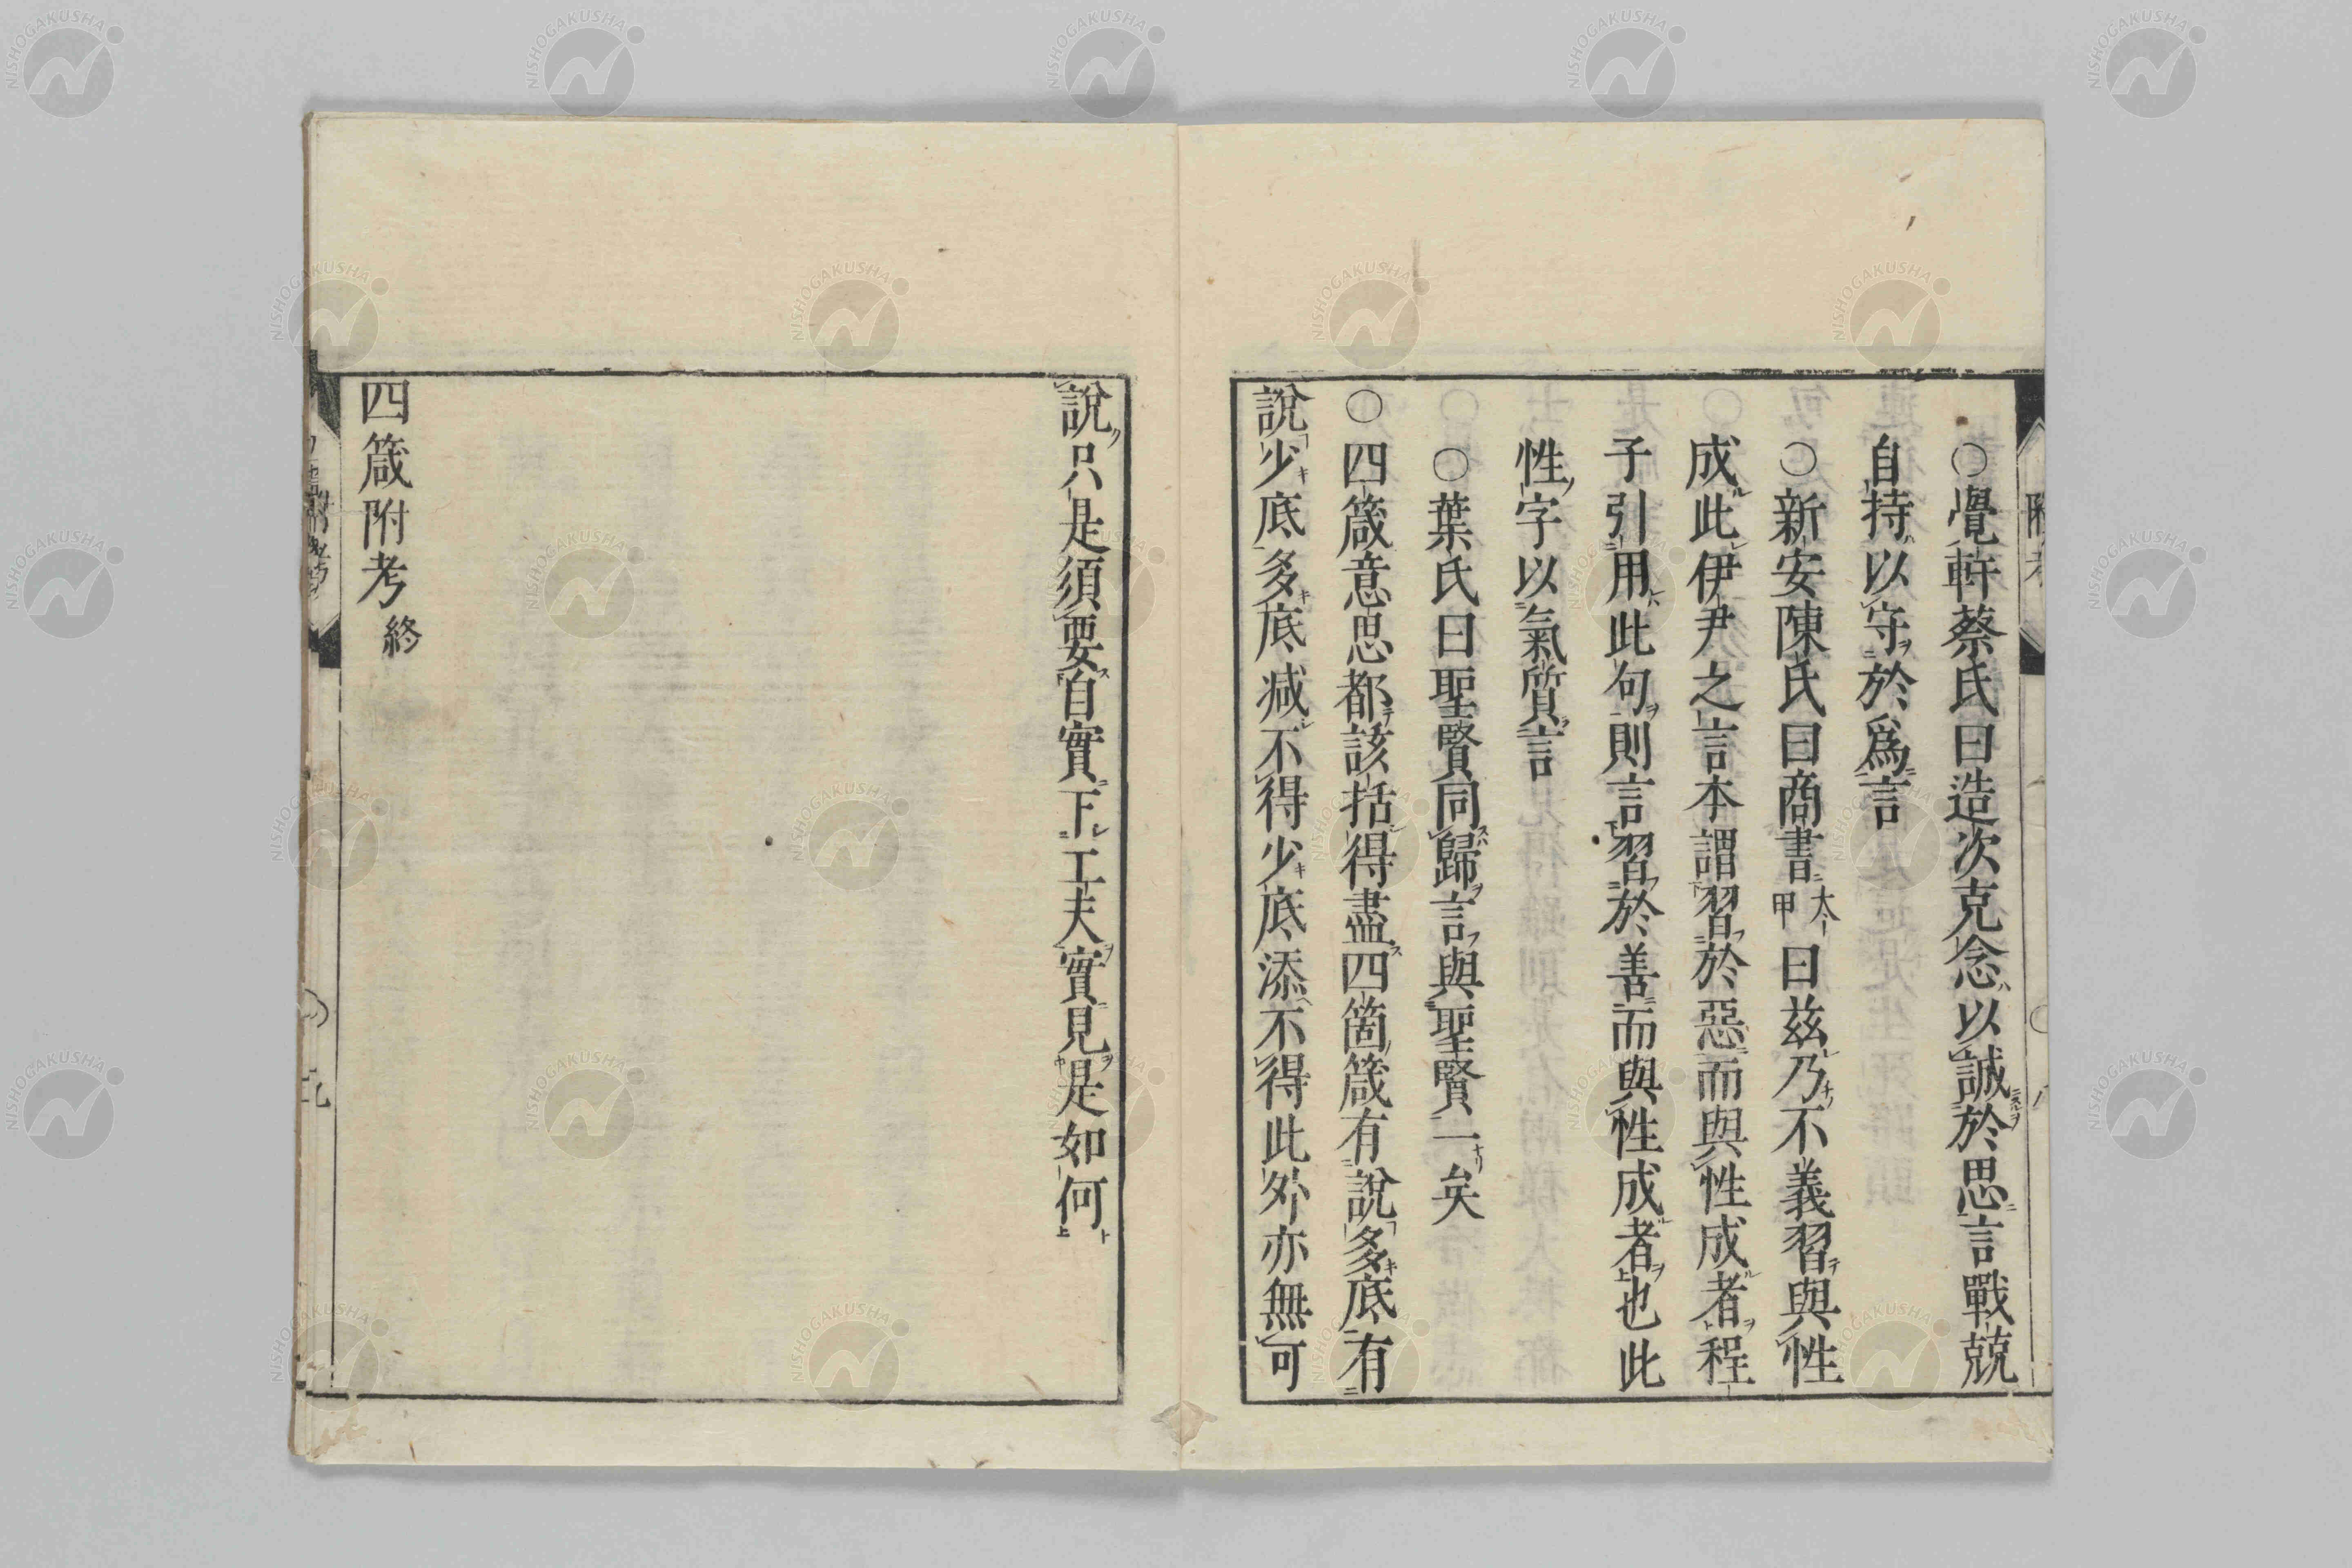 ○覺軒蔡氏曰造次克念以誠於思言戰兢
自持以守於爲言
○新安陳氏曰商書太甲曰茲乃不義習與性
成此伊尹之言本謂習於惡而與性成者程
子引用此句則言習於善而與性成者也此
性字以氣質言
○葉氏曰聖賢同歸言與聖賢一矣
○四箴意思都該括得盡四箇箴有說多底有
說少底多底減不得少底添不得此外亦無可
說只是須要自實下工夫實見是如何
四箴附考終
NISHOGAKUSHA